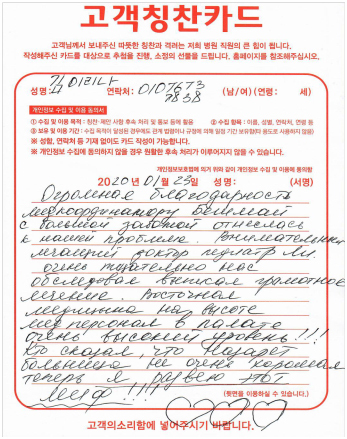 고객칭찬카드
고객님께서 보내주신 따뜻한 칭찬과 격려는 저희 병원 직원의 큰 힘이 됩니다.
작성해주신 카드를 대상으로 추첨을 진행, 소정의 선물을 드립니다. 홈페이지를 참조해주십시오.
성명: 김이리나 연락처: 01076737838 (남/여) (연령: 세)
개인정보 수집 및 이용 동의서
① 수집 및 이용 목적 : 칭찬·제안 사항 후속 처리 및 통보 등에 활용 ② 수집 항목 : 이름, 성별, 연락처, 연령 등
③ 보유 및 이용 기간 : 수집 목적이 달성된 경우에도 관계 법령이나 규정에 의해 일정 기간 보유함(타 용도로 사용하지 않음)
※ 성함, 연락처 등 기재 없이도 카드 작성이 가능합니다.
※ 개인정보 수집에 동의하지 않을 경우 원활한 후속 처리가 이루어지지 않을 수 있습니다.
개인정보보호법에 의거 위와 같이 개인정보 수집 및 이용에 동의함
2020년 01월 23일 성명: (서명)
Огромная благодарность
медкоординатору
с большой заботой отнеслась
к нашей проблеме. Внимательный
доктор педиатр Ли
очень тщательно нас
обследовал выписал грамотное
лечение. Восточная
медицина на высоте
мед персонал в палате
очень высокий уровень!!!
Кто сказал, что
больница не очень хорошая
теперь я развею этот
миф!!!!
(뒷면을 이용하실 수 있습니다.)
고객의소리함에 넣어주시기 바랍니다.